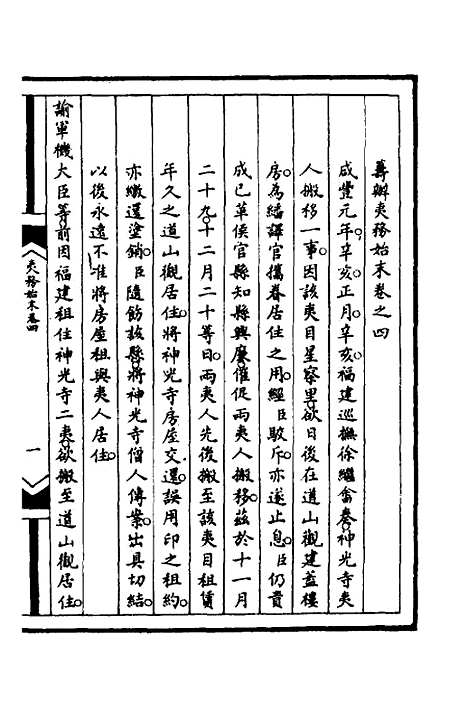 籌辦夷務始末卷之四
咸豐元年。辛亥正月。辛亥。福建巡撫徐繼畬奏。神光寺夷
人搬移一事。因該夷目星察里。欲日後在道山觀建蓋樓
房。為繙譯官攜眷居住之用。經臣駁斥。亦遂止息。臣仍責
成已革侯官縣知縣興廉。催促兩夷人搬移。茲於十一月
二十九。十二月二十等日。兩夷人先後搬至該夷目租賃
年久之道山觀居住。將神光寺房屋交還。誤用印之租約。
亦繳還塗銷。臣隨飭該縣將神光寺僧人傳案。出具切結。
以後永遠不准將房屋租與夷人居住。
諭軍機大臣等。前因福建租住神光寺二夷。欲搬至道山觀居住。
夷務始末卷四
一